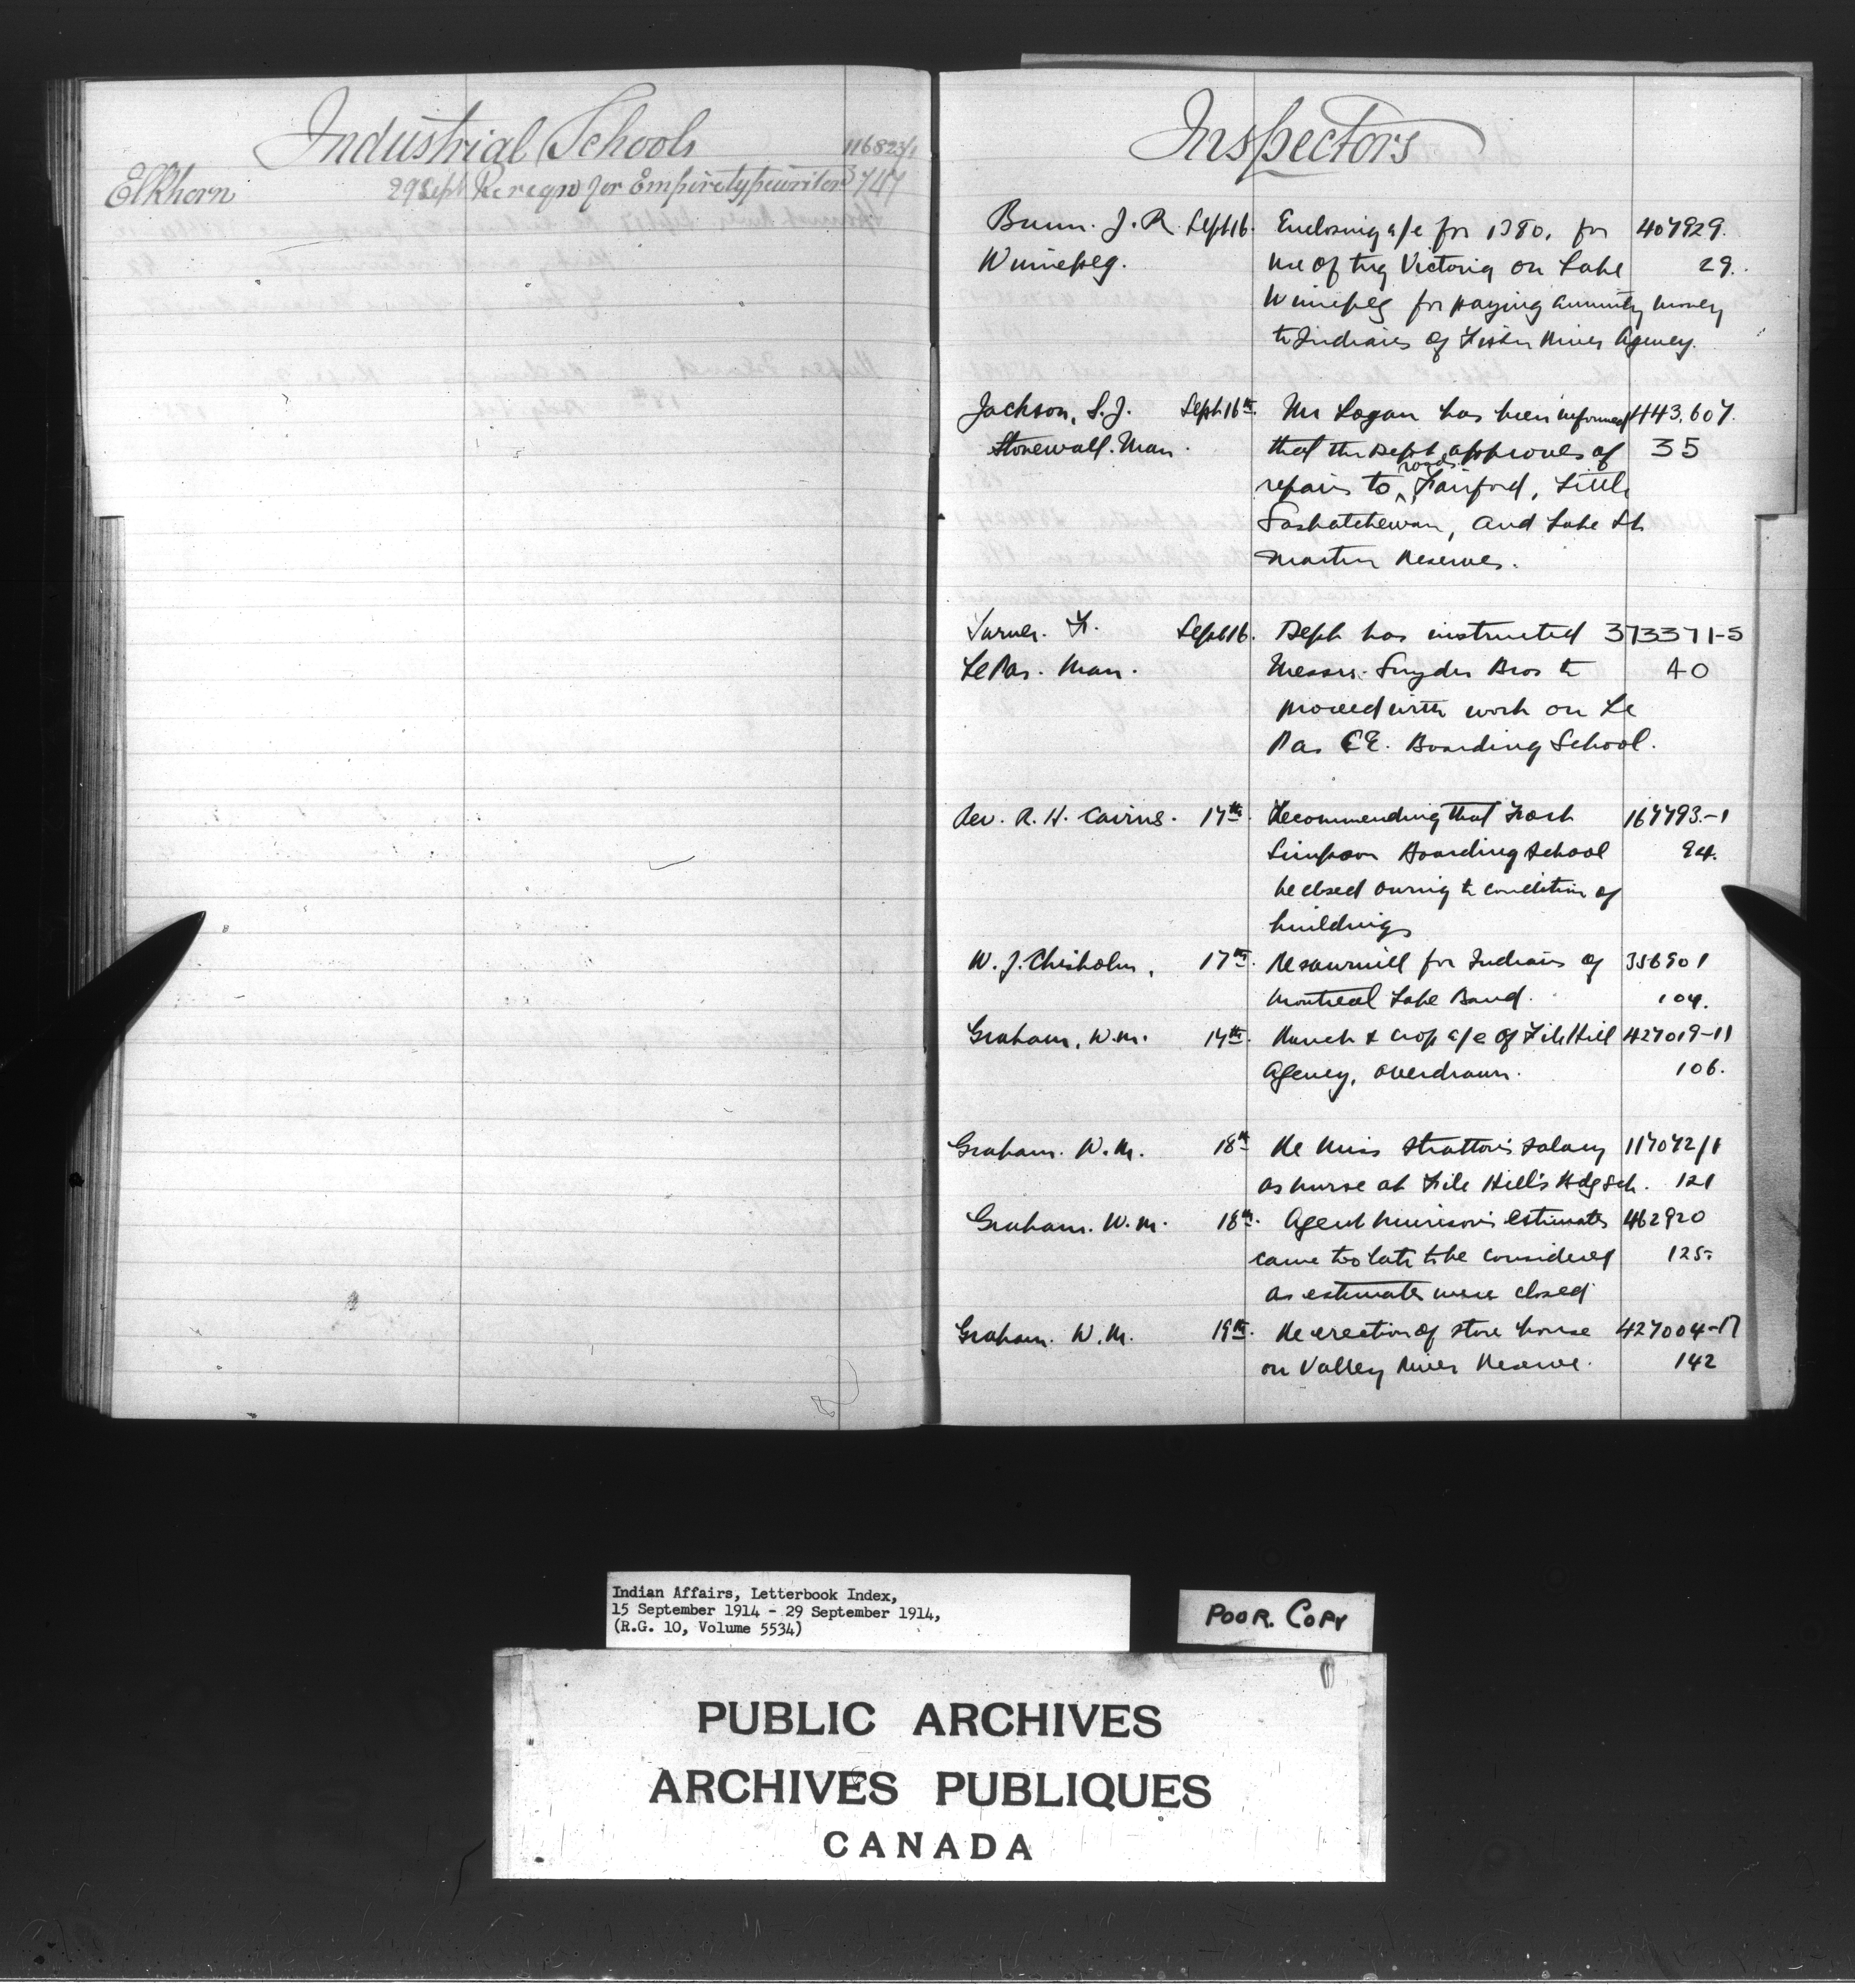 Industrial Schools
116823/1
Elkhorn 29 Sept Re reqn for Empire typewriter 747
Inspectors
Bunn. J. R. Sept 16. Enclosing a/c for 1380. for 407929.
Winnipeg. use of tug Victoria on Lake 29.
Winnipeg for paying annuity money
to Indians of Fisher River Agency.
Jackson, S. J. Sept 16th. Mr Logan has been informed 443,607.
Stonewall. Man. that the Dept approves of 35
repairs to roads Fairford, Little
Saskatchewan, and Lake St
Martin Reserves.
Turner. F. Sept 16. Dept has instructed 373371-5
Le Pas. Man. Messrs. Snyder Bros to 40
proceed with work on Le
Pas C.E. Boarding School.
Rev. R. H. Cairns. 17th. Recommending that Port 167793-1
Simpson Boarding School 94.
be closed owing to condition of
buildings
W. J. Chisholm, 17th. Re sawmill for Indians of 356901
Montreal Lake Band. 104.
Graham, W. M. 17th. Ranch & crop a/c of File Hill 427019-11
Agency, overdrawn. 106.
Graham. W. M. 18th Re Miss Stratton's salary 117072/1
as nurse at File Hill's Bdg Sch. 121
Graham. W. M. 18th. Agent Murison's estimates 462920
came too late to be considered 125.
as estimates were closed
Graham. W. M. 19th. Re erection of store house 427004-17
on Valley River Reserve. 142
Indian Affairs, Letterbook Index,
15 September 1914 - 29 September 1914,
(R.G. 10, Volume 5534)
POOR. COPY
PUBLIC ARCHIVES
ARCHIVES PUBLIQUES
CANADA